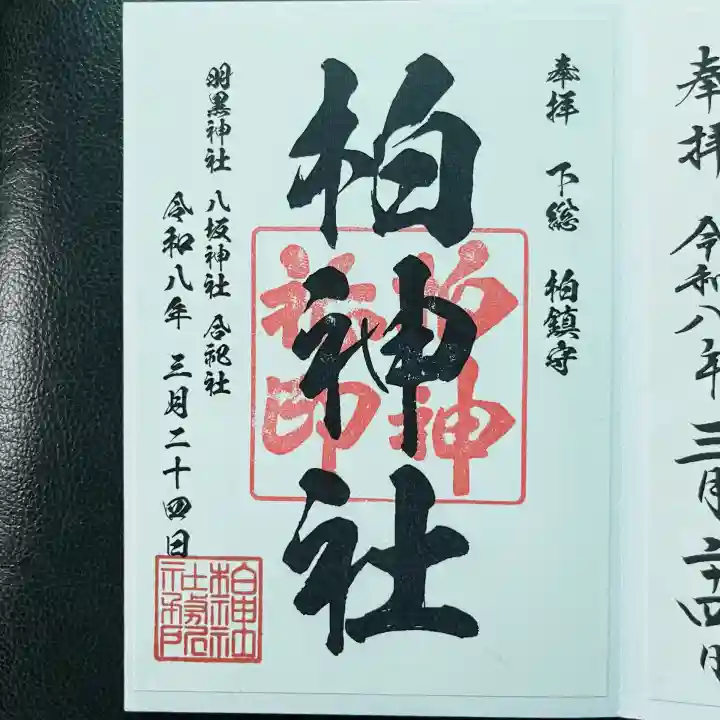 奉拝 令和八年 三月二十四日
奉拝 下総 柏鎮守
柏神社
柏神社印
羽黒神社 八坂神社 合祀社
令和八年 三月二十四日
柏神社社務所